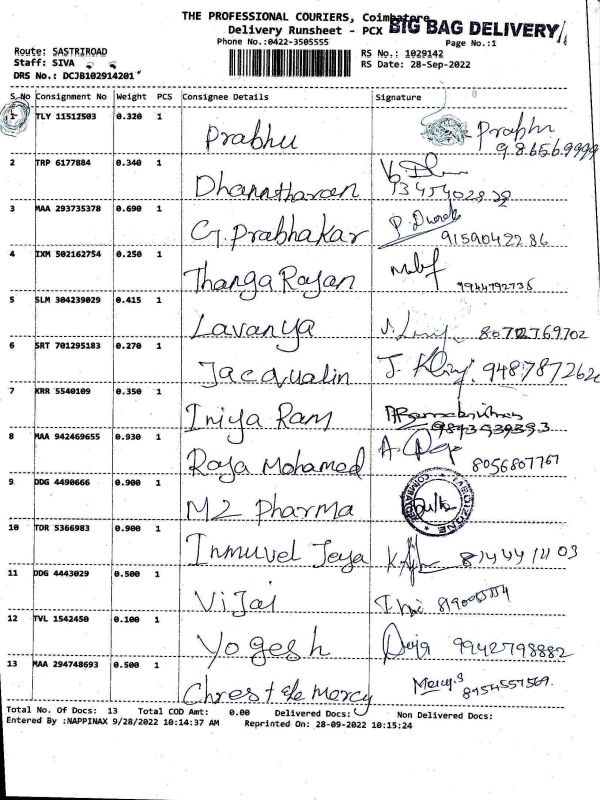 THE PROFESSIONAL COURIERS, Coimbatore
BIG BAG DELIVERY
Delivery Runsheet - PCX
Phone No.:0422-3505555
Page No.:1
Route: SASTRIROAD
Staff: SIVA
DRS No.: DCJB102914201
RS No.: 1029142
RS Date: 28-Sep-2022
S.No Consignment No Weight PCS Consignee Details Signature
1 TLY 11512503 0.320 1 Prabhu Prabhu
2 TRP 6177884 0.340 1
3 MAA 293735378 0.690 1 G. Prabhakar 9159042286
4 IXM 502162754 0.250 1 Thanga Rajan 9944792736
5 SLM 304239029 0.415 1 Lavanya 8072769702
6 SRT 701295183 0.270 1 Jacqualin J.
7 KRR 5540109 0.350 1 Iniya Ram 9843539393
8 MAA 942469655 0.930 1 Raja Mohamed A. 8056807767
9 DDG 4490666 0.900 1 M2 Pharma
10 TDR 5366983 0.900 1 Inmuvel Jeya
11 DDG 4443029 0.500 1 Vijai
12 TVL 1542450 0.100 1 Yogesh 9942798882
13 MAA 294748693 0.500 1 Mercy Mercy.S
Total No. Of Docs: 13 Total COD Amt: 0.00 Delivered Docs: Non Delivered Docs:
Entered By :NAPPINAX 9/28/2022 10:14:37 AM Reprinted On: 28-09-2022 10:15:24